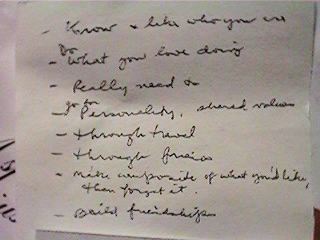 - Know + like who you are
Do
- What you love doing
- Really need to
go for
- Personality, shared values
- through travel
- through friends
- Make composide of what you'd like,
then forget it.
- Build friendships